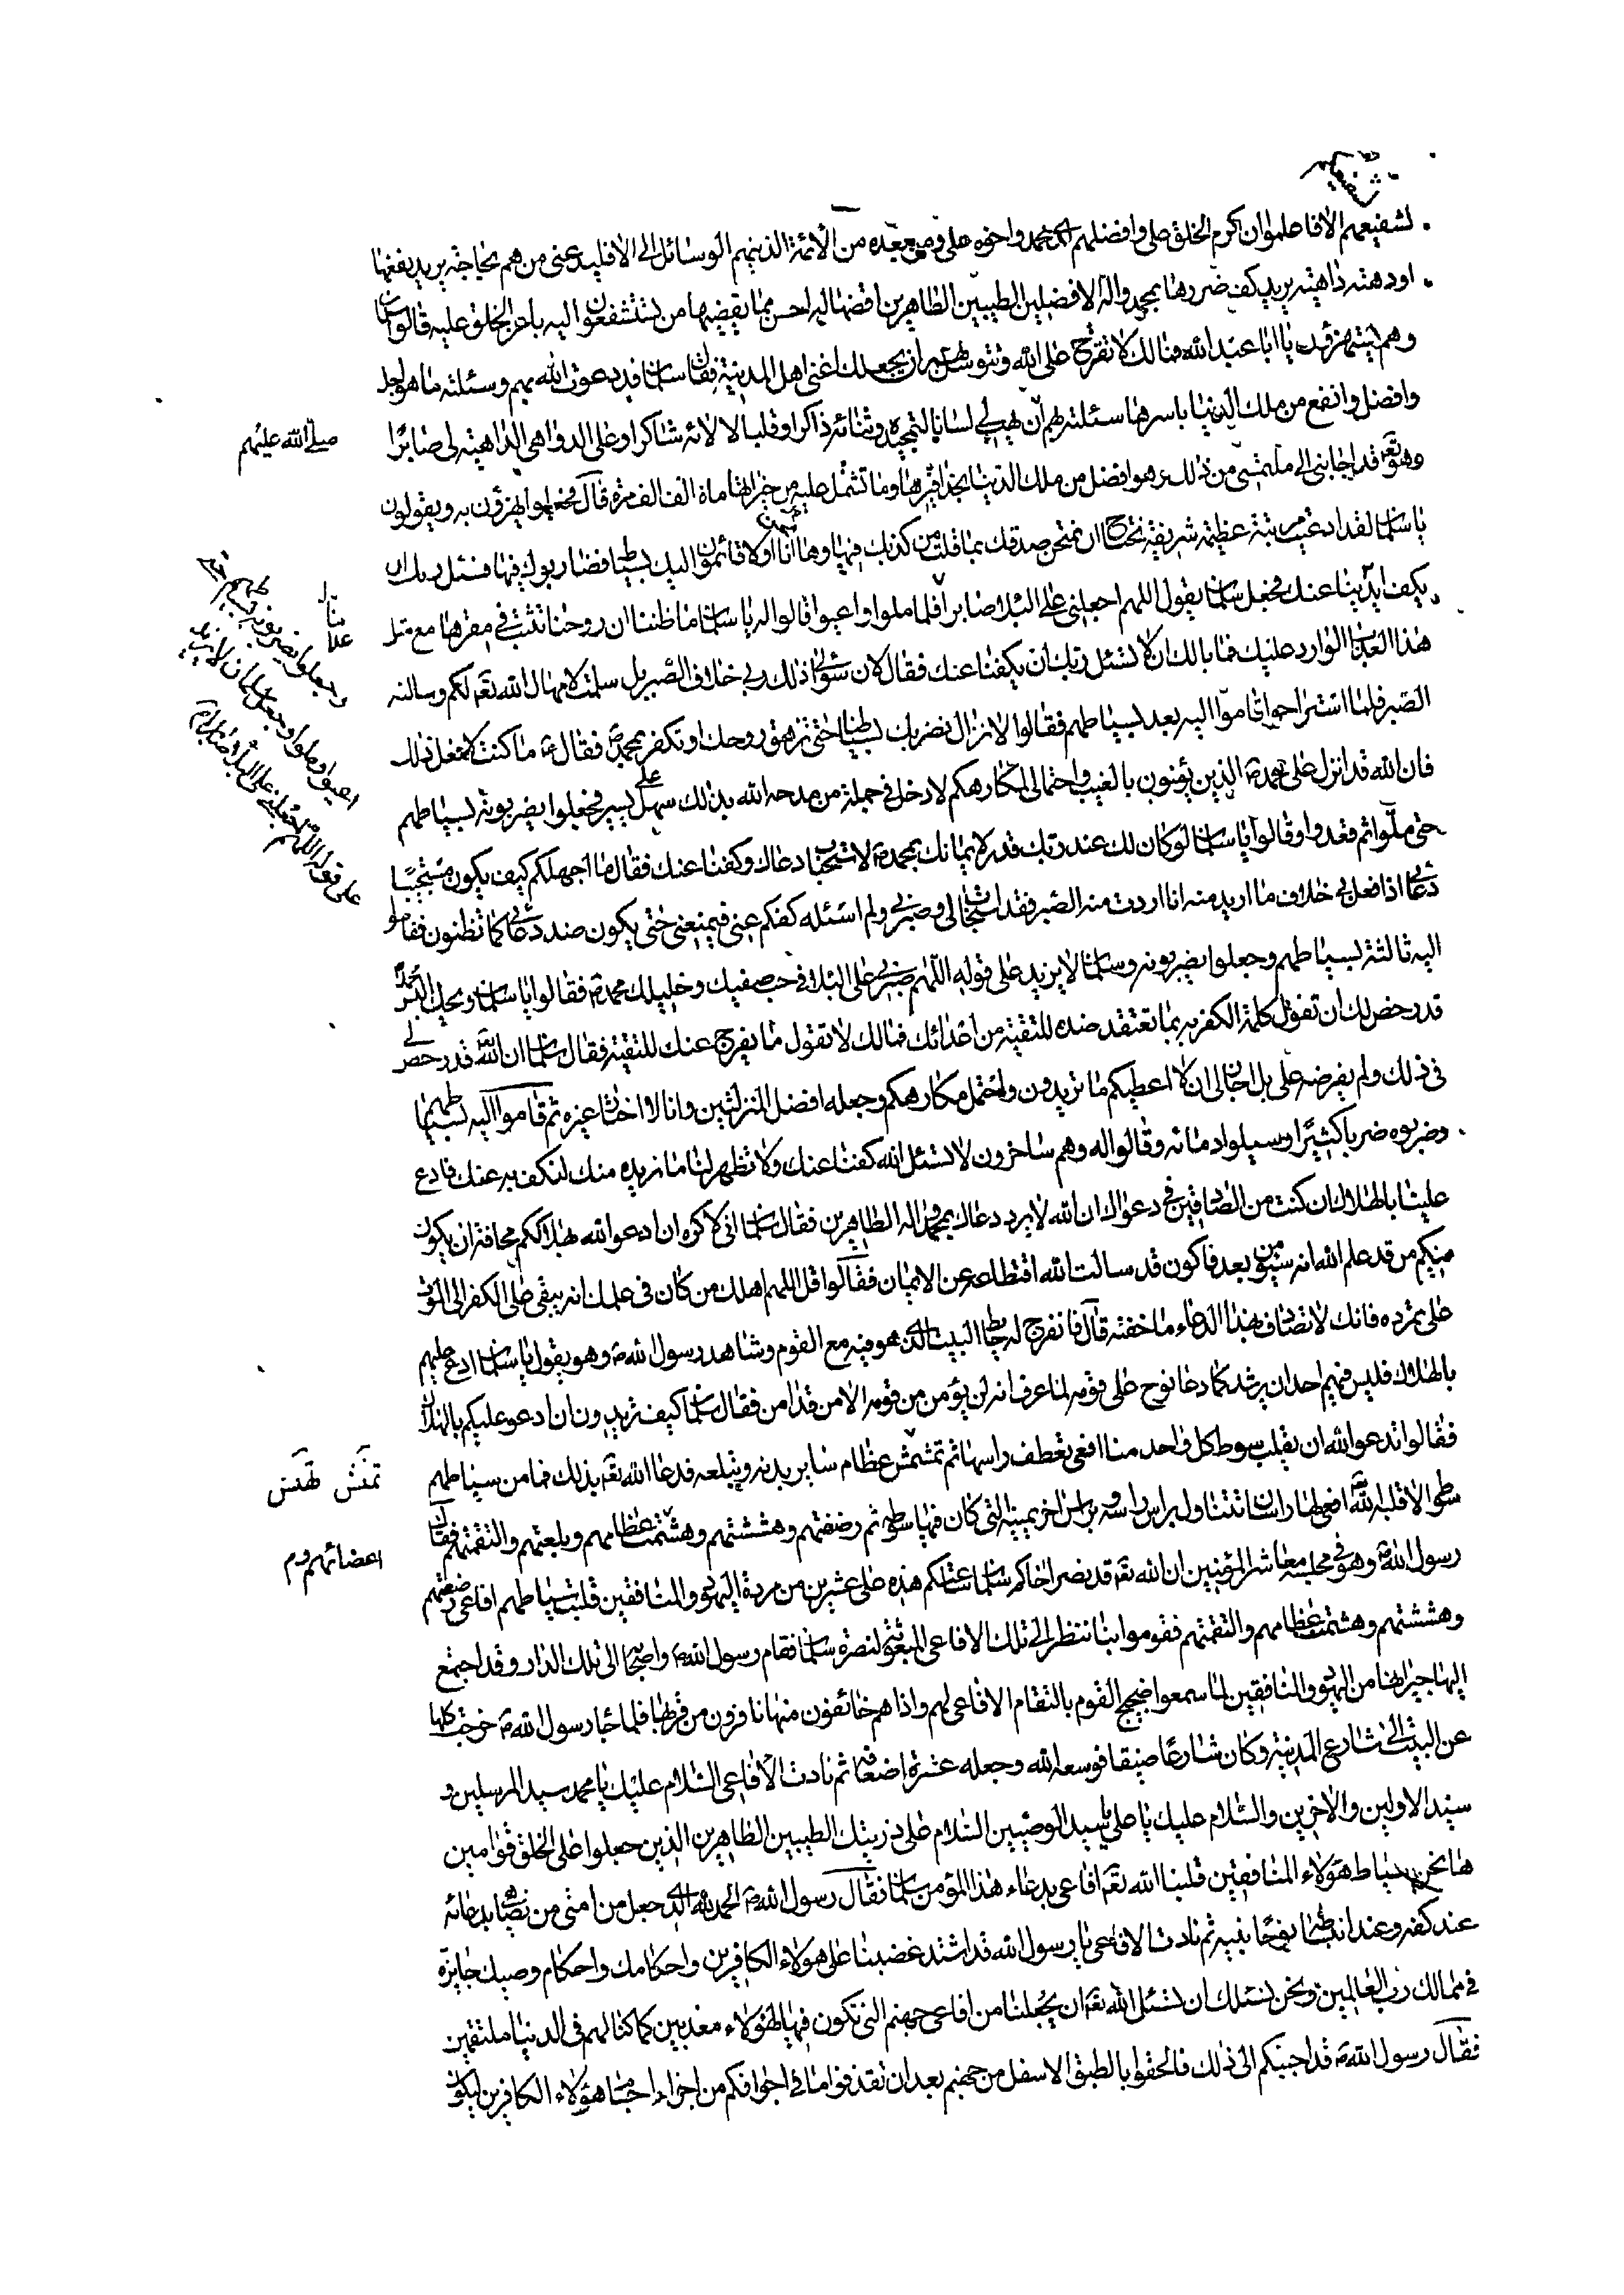 لشفيعهم الا فاعلموا ان اكرم الخلق على وافضلهم لدى محمد واخوه على ومن بعده من الائمة الذينهم الوسائل الى الا فليدعنى من هم بحاجة يريد نفعها
او دهته داهية يريد كف ضررها بمحمد واله الافضلين الطيبين الطاهرين اقضها له احسن مما يقضيها من تستشفعون اليه باعز الخلق عليه قالوا لسلمان
وهم يستهزؤن يا ابا عبد الله فما لك لا تقترح على الله وتتوسل بهم ان يجعلك اغنى اهل المدينة فقال سلمان قد دعوت الله بهم وسئلته ما هو اجل
وافضل وانفع من ملك الدنيا باسرها سئلته بهم ان يهب لى لسانا لتمجيده وثنائه ذاكرا وقلبا لالائه شاكرا وعلى الدواهى الداهية لى صابرا
صلى الله عليهم
وهو تعه قد اجابنى الى ملتمسى من ذلك وهو افضل من ملك الدنيا بحذافيرها وما تشتمل عليه من خيراتها مأة الف الف مرة قال فجعلوا يهزؤن به ويقولون
يا سلمان لقد ادعيت مرتبة عظيمة شريفة نحتاج ان نمتحن صدقك بما قلت من كذبك فيها وها انا اولا قائمون اليك بسياطنا فضاربوك فيها فسئل ربك ان
يكف ايدينا عنك فجعل سلمان يقول اللهم اجعلنى على البلاء صابرا فلما ملوا واعيوا قالوا له يا سلمان ما ظننا ان روحنا تثبت فى مقرها مع مثل
هذا العذاب الوارد عليك فما بالك ان لا تسئل ربك ان يكفنا عنك فقال لان سؤالى ذلك ربى خلاف الصبر بل سلمت لامهال الله تعه لكم وسالته
الصبر فلما استراحوا قاموا اليه بعد بسياطهم فقالوا لا نزال نضربك بسياطنا حتى تزهق روحك او تكفر بمحمد ص فقال ما كنت لافعل ذلك
فان الله قد انزل على محمد ص الذين يؤمنون بالغيب واحتمالى لمكارهكم لادخل فى جملة من مدحه الله بذلك سهل على يسير فجعلوا يضربونه بسياطهم
حتى ملوا ثم قعدوا وقالوا يا سلمان لو كان لك عند ربك قدر لايمانك بمحمد ص لاستجاب دعاك وكفنا عنك فقال ما اجهلكم كيف يكون مستجيبا
دعائى اذا فعل بى خلاف ما اريد منه انا اردت منه الصبر فقد استجاب لى وصبرنى ولم اسئله كفكم عنى فيمنعنى حتى يكون ضد دعائى كما تظنون فقاموا
اليه ثالثة بسياطهم وجعلوا يضربونه وسلمان لا يزيد على قوله اللهم صبرنى على البلاء فى حب صفيك وخليلك محمد ص فقالوا يا سلمان ويحك اليس محمد
قد رخص لك ان تقول كلمة الكفر به بما تعتقد ضده للتقية من اعدائك فما لك لا تقول ما يفرج عنك للتقية فقال سلمان ان الله قد رخص لى
فى ذلك ولم يفرضه على بل اجاز لى ان لا اعطيكم ما تريدون واحتمل مكارهكم وجعله افضل المنزلتين وانا لا اختار غيره ثم قاموا اليه بسياطهم
وضربوه ضربا كثيرا وسيلوا دمائه وقالوا له وهم ساخرون لا تسئل الله كفنا عنك ولا تظهر لنا ما نريده منك لنكف به عنك فادع
علينا بالهلاك ان كنت من الصادقين فى دعواك ان الله لا يرد دعاك بمحمد واله الطاهرين فقال سلمان انى لاكره ان ادعو الله بهلاككم مخافة ان يكون
منكم من قد علم الله انه سيؤمن بعد فاكون قد سالت الله اقتطاعه عن الايمان فقالوا قل اللهم اهلك من كان فى علمك انه يبقى على الكفر الى الموت
على تمرده فانك لا تصادف بهذا الدعاء ما خفته قال فانفرج له حايط البيت الذى هو فيه مع القوم وشاهد رسول الله ص وهو يقول يا سلمان ادع عليهم
بالهلاك فليس فيهم احد ان يرشد كما دعا نوح على قومه لما عرف انه لن يؤمن من قومه الا من قد امن فقال سلمان كيف تريدون ان ادعو عليكم بالهلاك
فقالوا تدعو الله ان يقلب سوط كل واحد منا افعى تعطف راسها ثم تمشمش عظام سائر بدنه وتبلعه فدعا الله تعه بذلك فما من سياطهم
سوط الا قلبه الله افعى لها راسان تتناول براس راسه وبراس اخر يمينه التى كان فيها سوطه ثم رضضتهم وهششتهم وهشمت عظامهم وبلعتهم والتقمتهم فقال
اعضائهم وم
رسول الله ص وهو فى مجلسه معاشر المؤمنين ان الله تعه قد نصر اخاكم سلمان ساعتكم هذه على عشرين من مردة اليهود والمنافقين قلبت سياطهم افاعى رضضتهم
وهششتهم وهشمت عظامهم والتقمتهم فقوموا بنا ننظر الى تلك الافاعى المبعوثة لنصرة سلمان فقام رسول الله ص واصحابه الى تلك الدار وقد اجتمع
اليها جيرانها من اليهود والمنافقين لما سمعوا ضجيج القوم بالتقام الافاعى لهم واذا هم خائفون منها نافرون من قربها فلما جاء رسول الله ص خرجت كلها
عن البيت الى شارع المدينة وكان شارعا ضيقا فوسعه الله وجعله عشرة اضعافه ثم نادت الافاعى السلام عليك يا محمد سيد المرسلين و
سيد الاولين والاخرين والسلام عليك يا على يا سيد الوصيين السلام على ذريتك الطيبين الطاهرين الذين جعلوا على الخلق قوامين
ها نحن سياط هؤلاء المنافقين قلبنا الله تعه افاعى بدعاء هذا المؤمن سلمان فقال رسول الله ص الحمد لله الذى جعل من امتى من يضاهى بدعائه
عند كفه وعند انبساطه نوحا نبيه ثم نادت الافاعى يا رسول الله قد اشتد غضبنا على هؤلاء الكافرين واحكامك واحكام وصيك جايزة
فى ممالك رب العالمين ونحن نسئلك ان تسئل الله تعه ان يجعلنا من افاعى جهنم التى تكون فيها لهؤلاء معذبين كما كنا لهم فى الدنيا ملتقمين
فقال رسول الله ص قد اجبتكم الى ذلك فالحقوا بالطبق الاسفل من جهنم بعد ان تقذفوا ما فى اجوافكم من اجزاء اجسام هؤلاء الكافرين ليكون